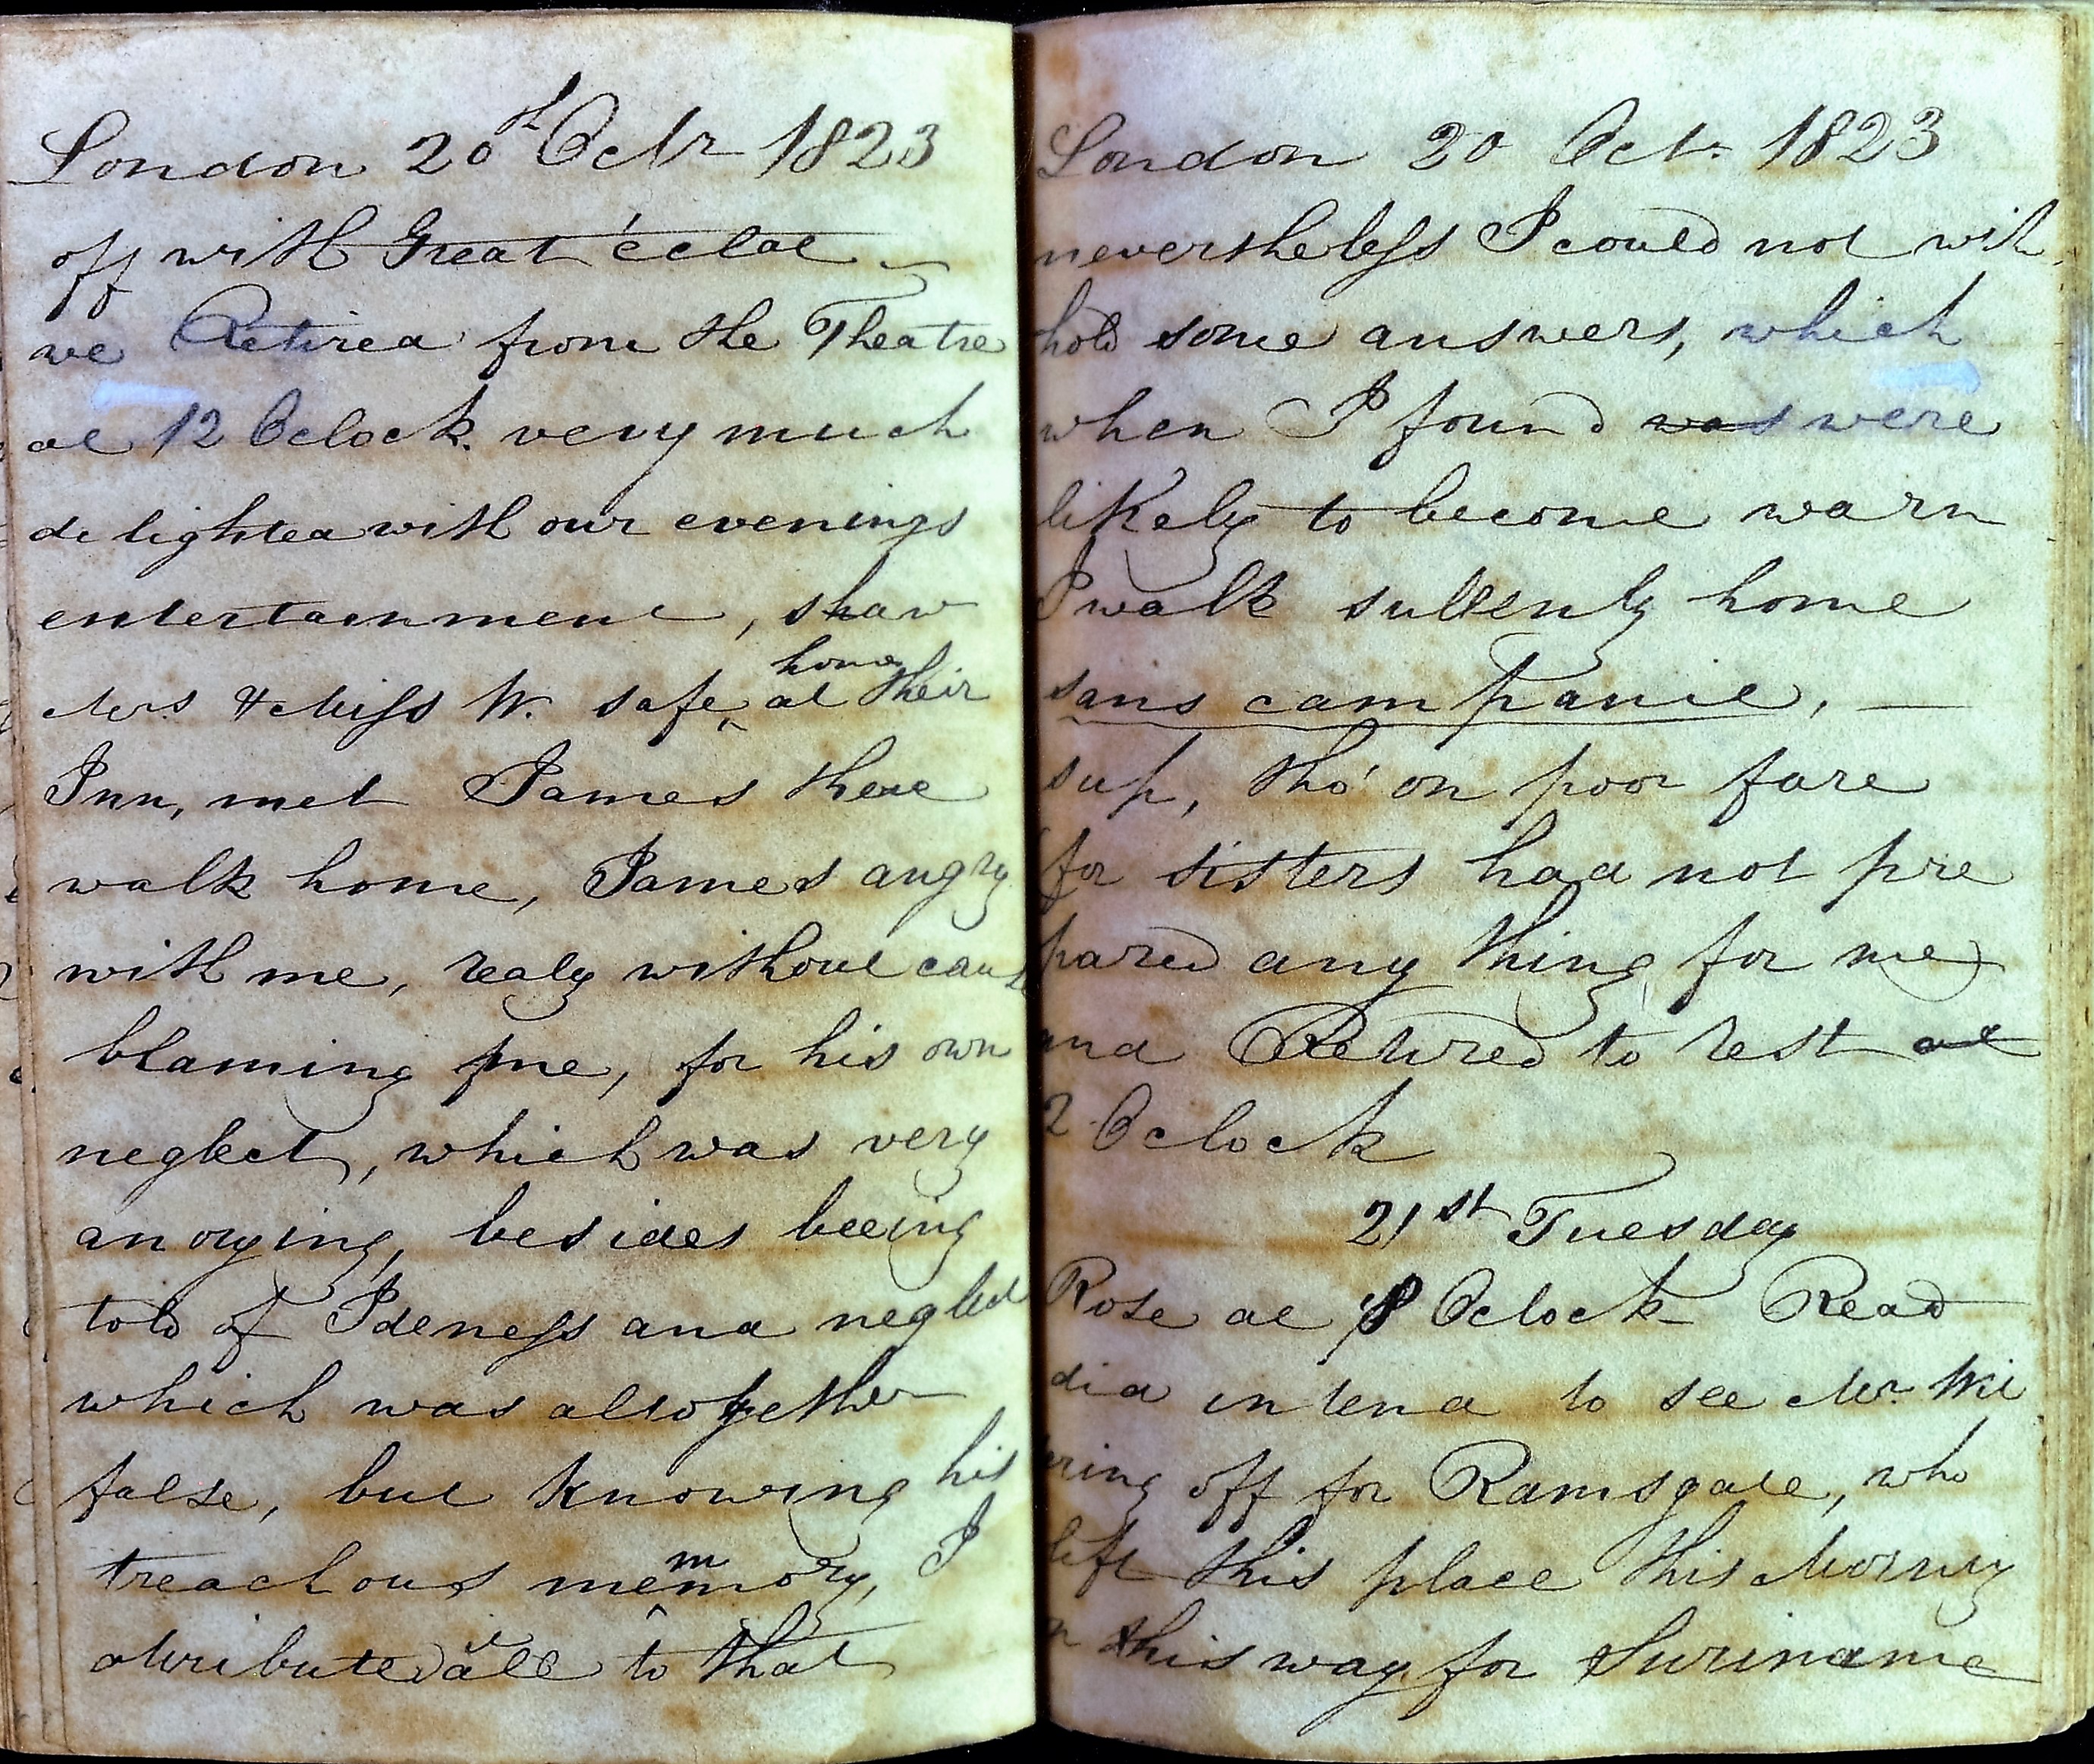 London 20th Octr 1823
off with Great éclat
we Retired from the Theatre
at 12 Oclock very much
delighted with our evenings
entertainment, shaw
home
Mrs & Miss W. safe, at their
Inn, met James there
walk home, James angry
with me, realy without cause
blaming me, for his own
neglect, which was very
anoying, besides beeing
told of Ideness and neglect
which was altogether
false, but knowing his
treachous memory, I
atribute all to that
London 20 Octr 1823
nevertheless I could not wit
hold some answers, which
when I found was were
likely to become warm
I walk sullenly home
sans campanie, —
sup, tho' on poor fare
for sisters had not pre
pared any thing for me
and Retired to rest at
2 Oclock
21st Tuesday
Rose at 8 Oclock Read
did intend to see Mr. Wil
off for Ramsgate, who
left this place this Morning
this way for Suriname